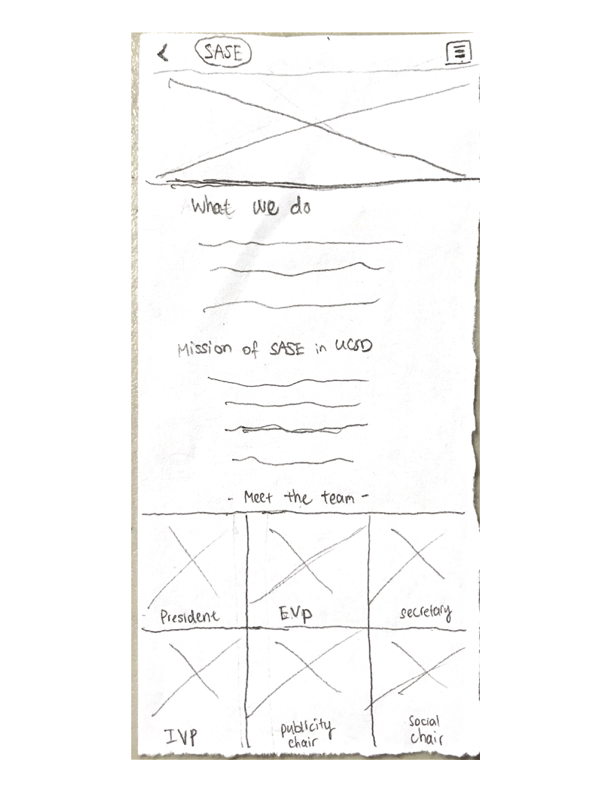 SASE
What we do
Mission of SASE in UCSD
- Meet the team -
President
EVP
secretary
IVP
publicity
chair
social
chair